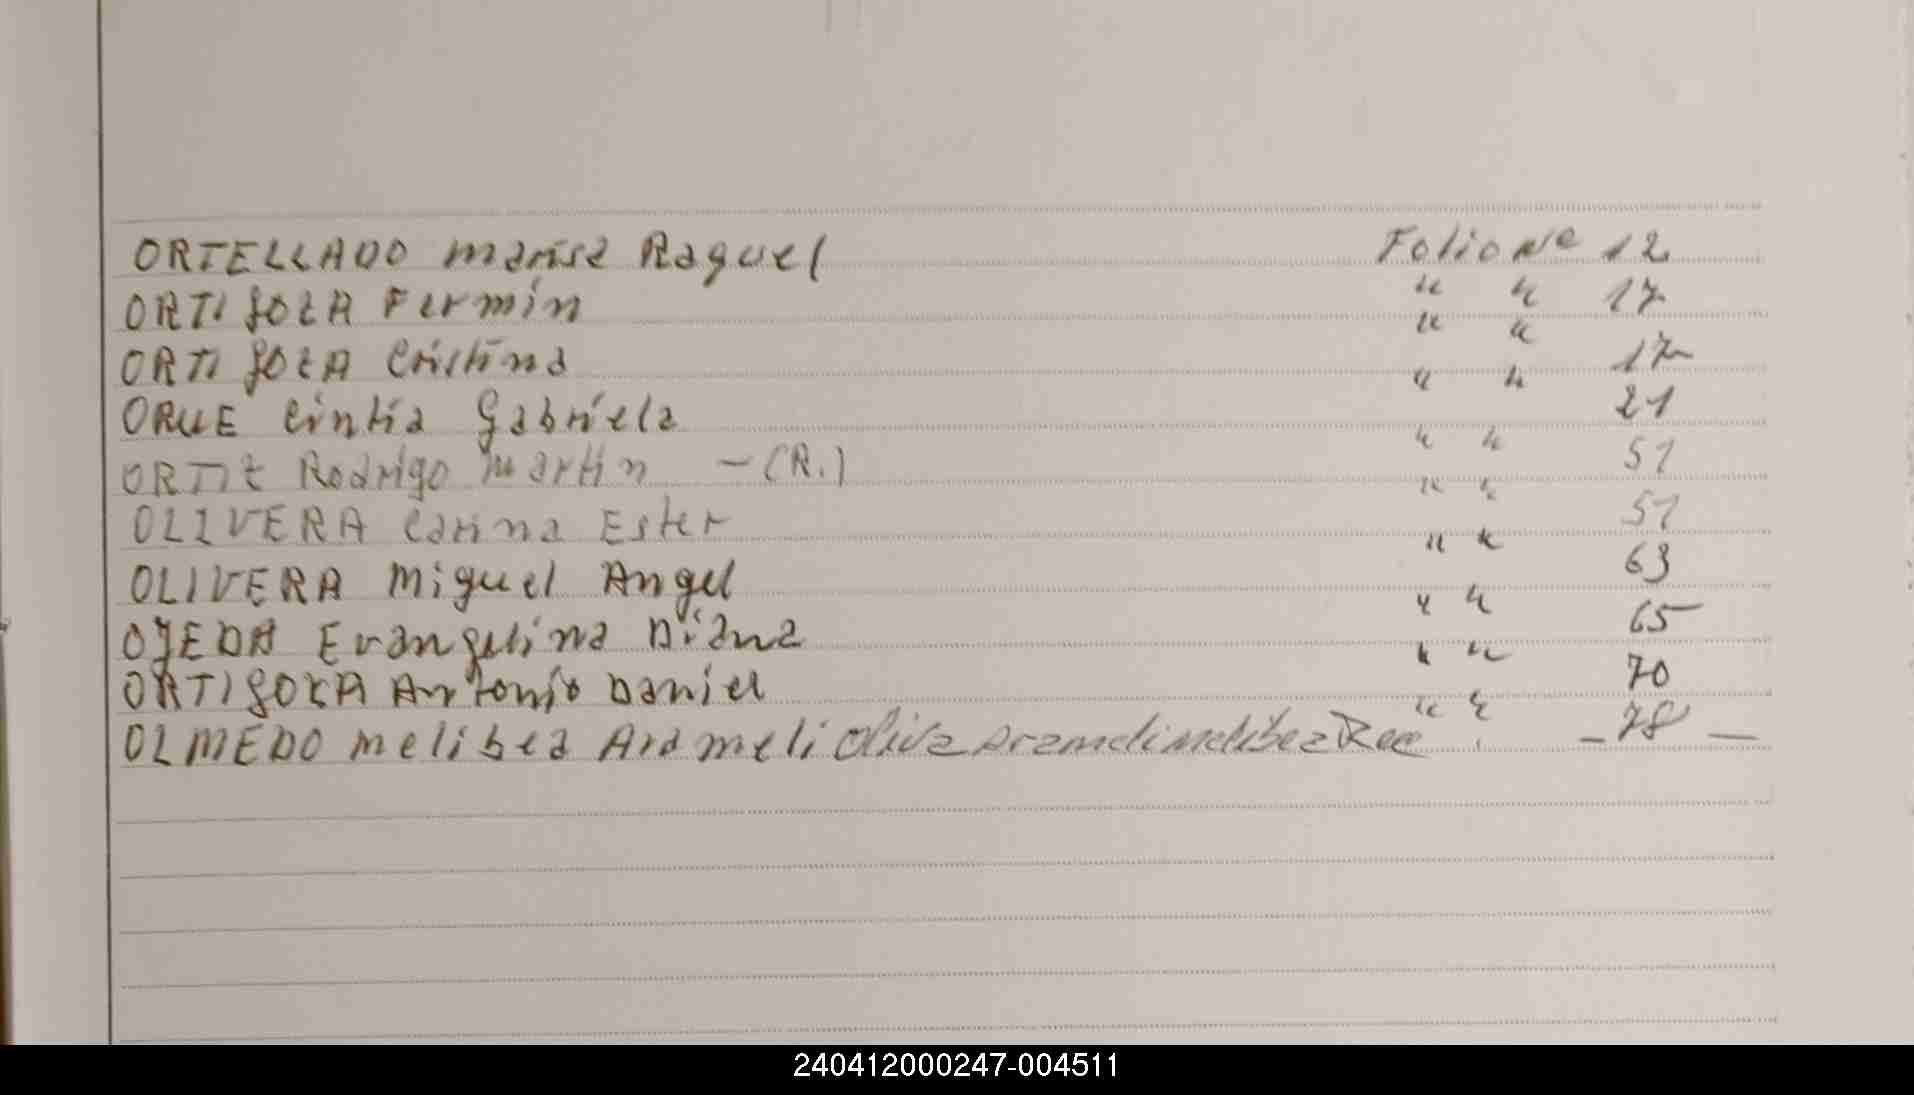 ORTELLADO Marisa Raquel Folio Nº 12
ORTIGOZA Fermín " " 17
ORTIGOZA Cristina " " 17
ORUE Cintia Gabriela " " 21
ORTIZ Rodrigo Martin - (R.) " " 51
OLIVERA Carina Ester " " 51
OLIVERA Miguel Angel " " 63
OJEDA Evangelina Diana " " 65
ORTIGOZA Antonio Daniel " " 70
OLMEDO Melibea Arameli Melibea " " - 78 -
240412000247-004511